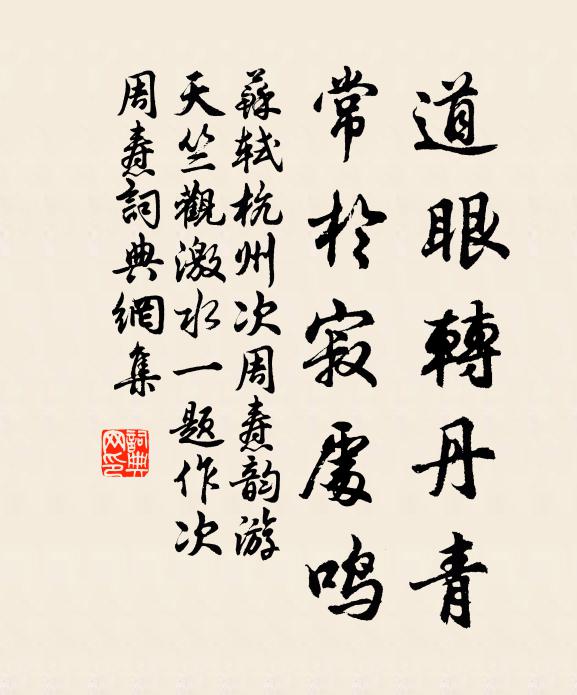 道眼轉丹青
常於寂處鳴
蘇軾杭州次周焘韵游
天竺觀激水一题作次
周焘詞典網集
詞典網印